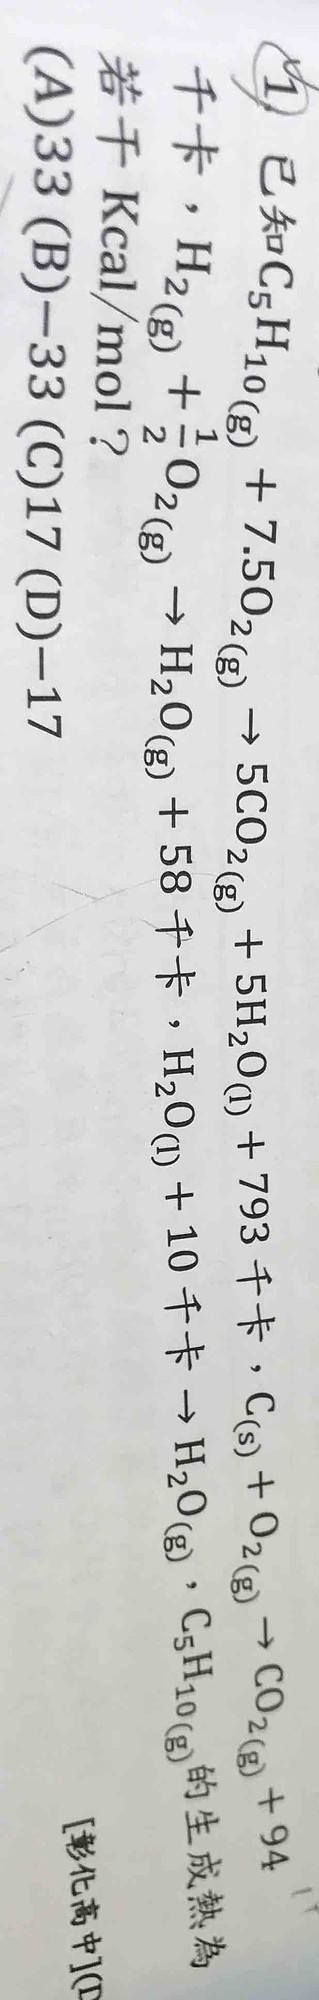 1. 已知C₅H₁₀(g) + 7.5O₂(g) → 5CO₂(g) + 5H₂O(l) + 793 千卡，C(s) + O₂(g) → CO₂(g) + 94
千卡，H₂(g) + 1/2 O₂(g) → H₂O(g) + 58 千卡，H₂O(l) + 10 千卡 → H₂O(g)，C₅H₁₀(g)的生成熱為
若干 Kcal/mol？
(A)33 (B)−33 (C)17 (D)−17
[彰化高中](D